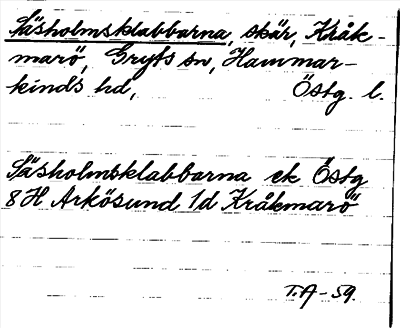 Fäsholmsklabbarna, skär, Kråk-
marö, Gryts sn, Hammar-
kinds hd, Östg. l.
Fäsholmsklabbarna ek Östg
8 H Arkösund 1d Kråkmarö
T.A-59.